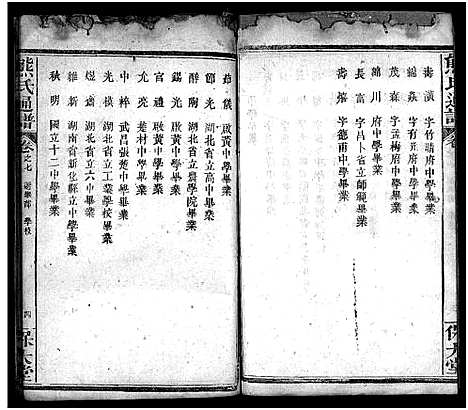 熊氏通譜
壽演 字竹晴府中學畢業
錦淼 字有元府中學畢業
茂森 字孟梅府中學畢業
錦川 府中學畢業
長富 字昌卜省立師範畢業
壽 字德甫中學畢業
保大堂
啟黃中學畢業
節光 湖北省立高中畢業
醉陶 湖北省立農學院畢業
錫光 啟黃中學畢業
官禮 啟黃中學畢業
允炎 楚材中學畢業
中梓 武昌張文中學畢業
光楙 湖北省立工業學校畢業
焜 湖北省立六中畢業
維新 湖南省新化縣立中學畢業
秋明 國立十二中學畢業
熊氏通譜
卷之七 學校
四
保大堂